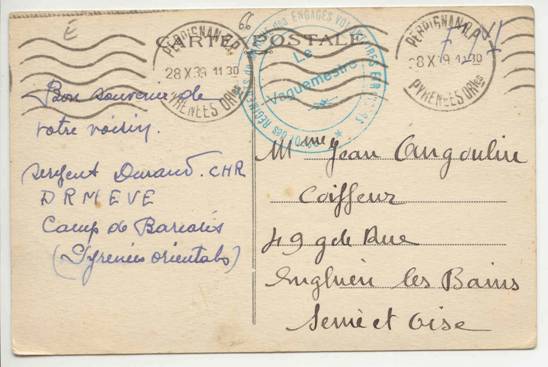 CARTE POSTALE
PERPIGNAN R.P.
28 X 39 11 30
PYRENEES ORles
Le
Vaguemestre
DEPOT des REGIMENTS de MARCHE des ENGAGES VOLONTAIRES ETRANGERS
PERPIGNAN R.P.
28 X 39 11 30
PYRENEES ORles
Bon souvenir de
votre voisin.
sergent Durand. CHR
DRMEVE
Camp de Barcarès
(Pyrenées orientales)
Mme Jean Angouline
Coiffeur
49 gde Rue
Enghien les Bains
Seine et Oise